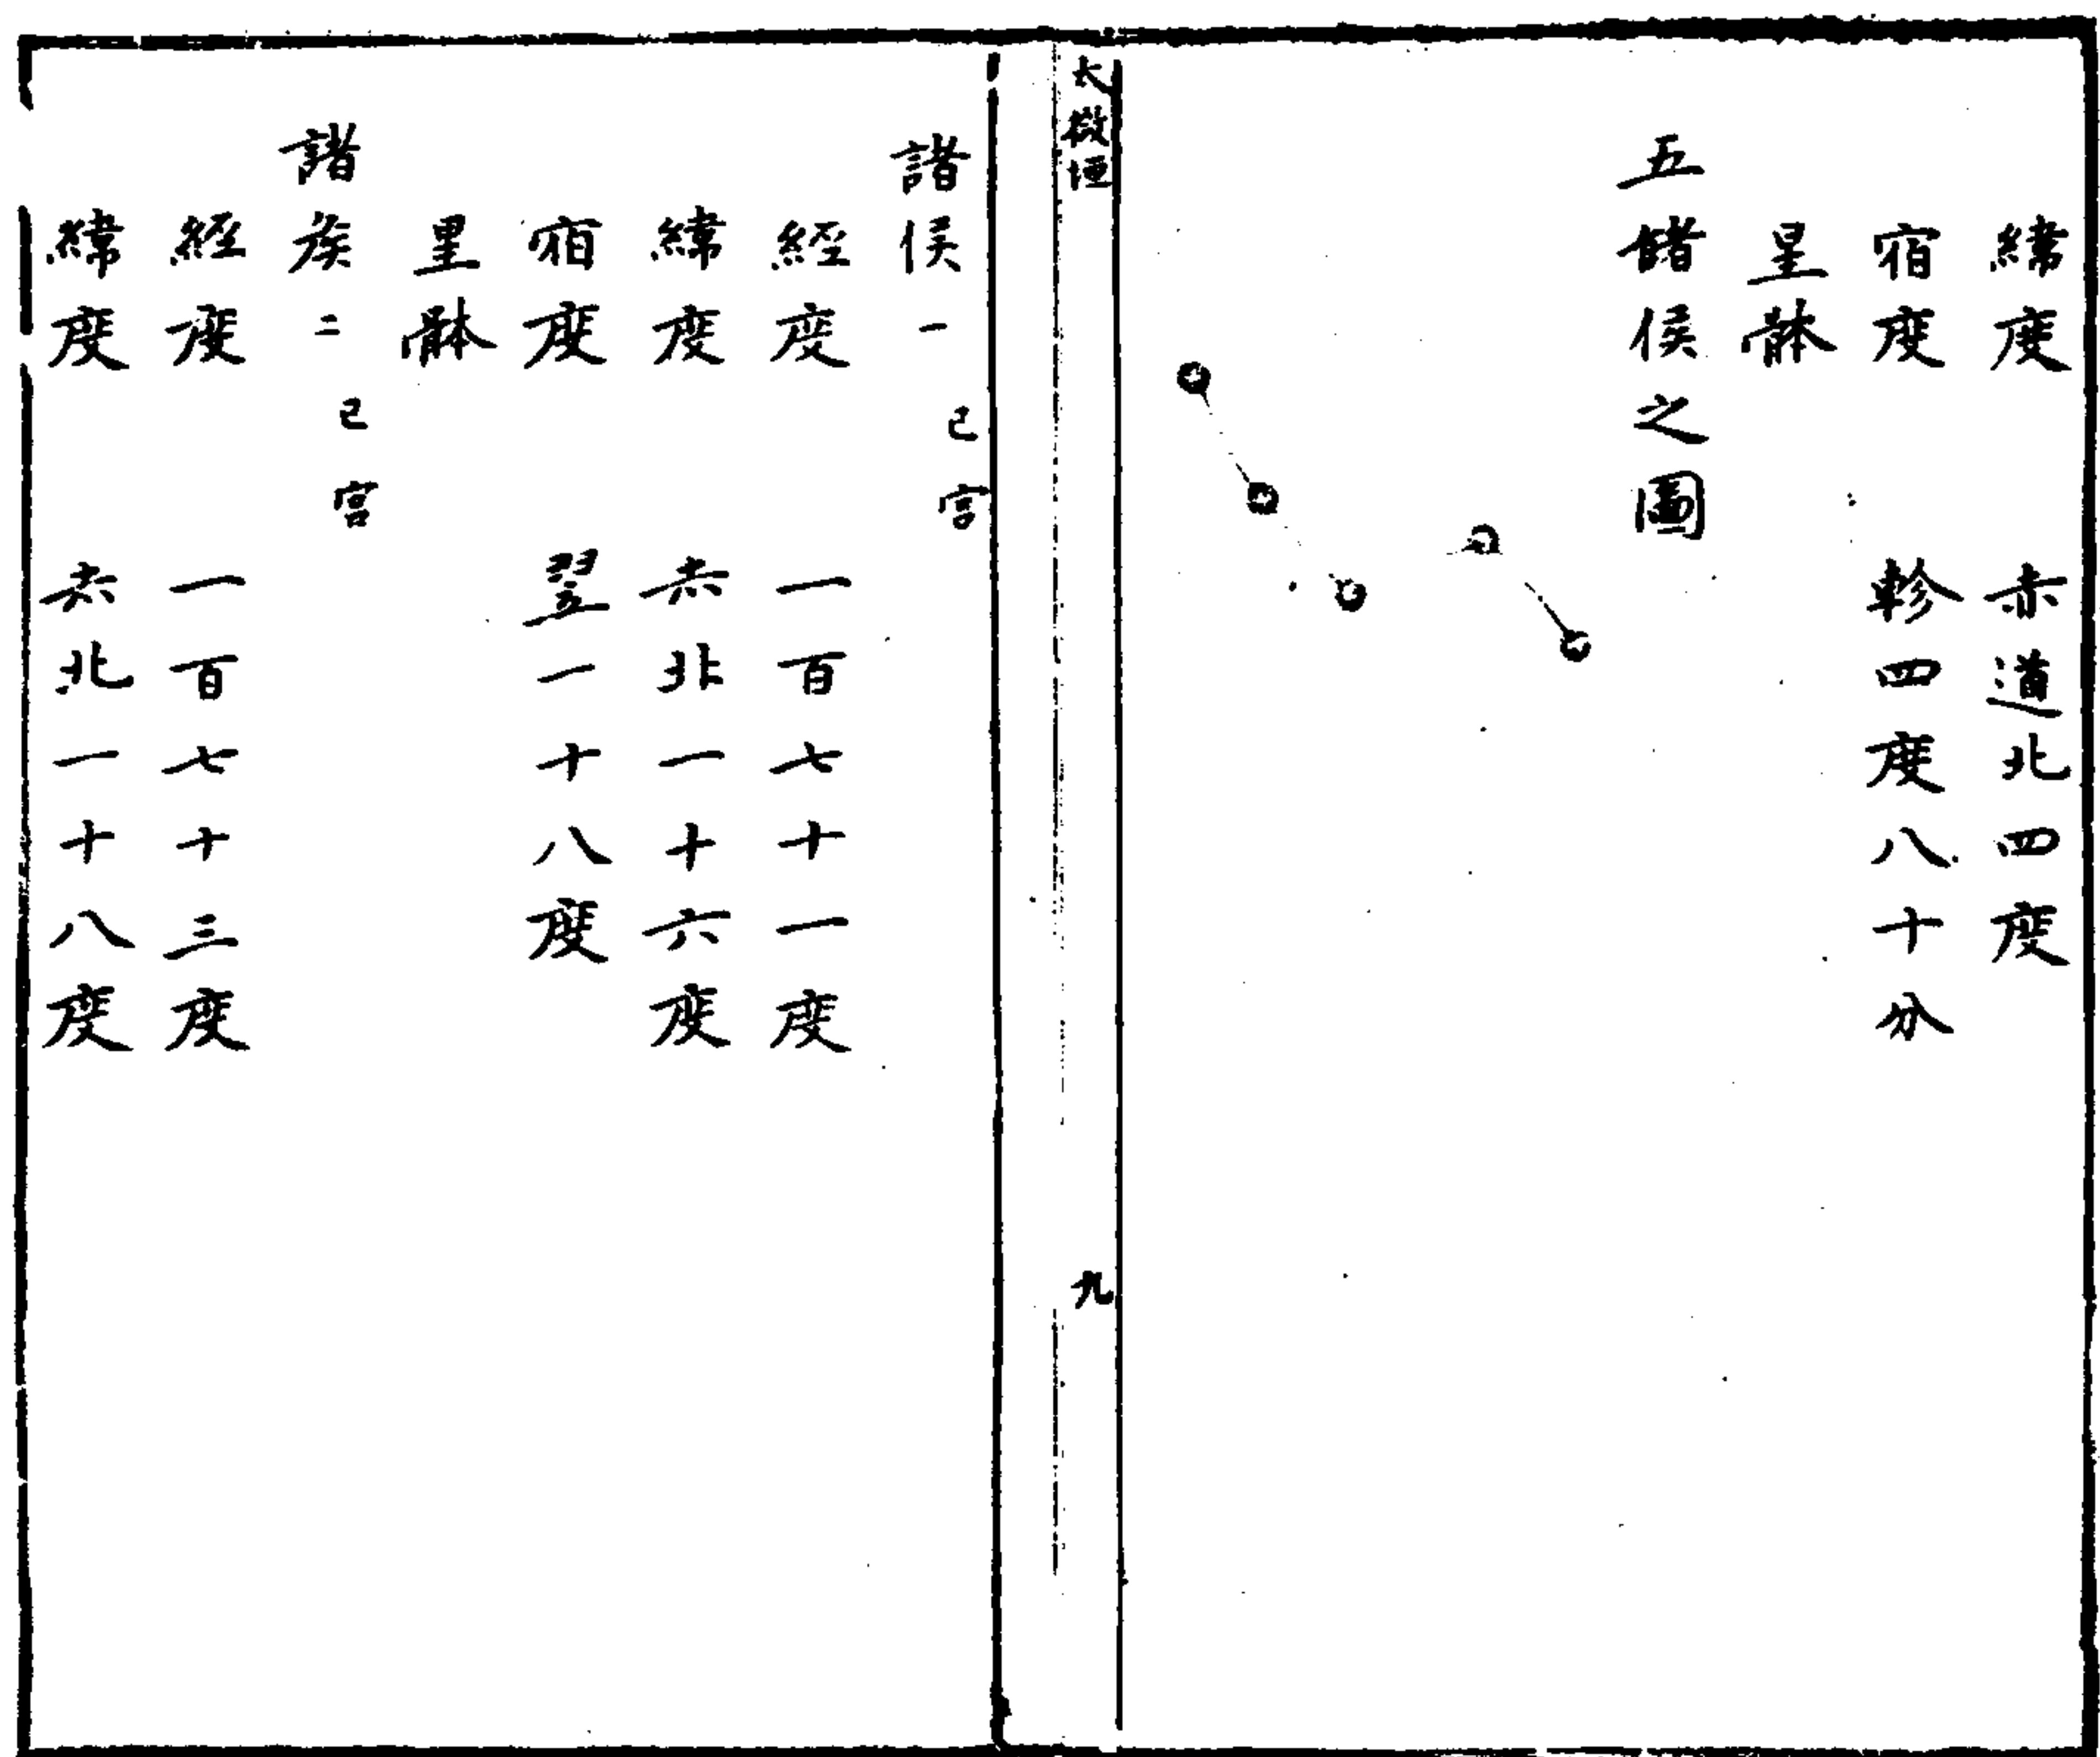 緯度 赤道北四度
宿度 軫四度八十分
星體
五諸侯之圖
太微垣 九
諸侯一 巳宮
經度 一百七十一度
緯度 赤北一十六度
宿度 翌一十八度
星體
諸侯二 巳宮
經度 一百七十三度
緯度 赤北一十八度